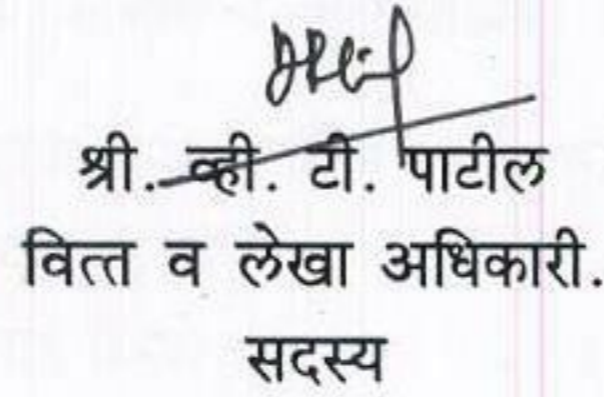 श्री. व्ही. टी. पाटील
वित्त व लेखा अधिकारी.
सदस्य